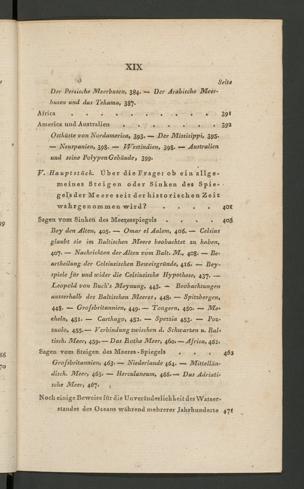 XIX
Seite
Der Persische Meerbusen, 384. — Der Arabische Meer-
busen und das Tehama, 387.
Africa . . . . . . . . 391
America und Australien . . . . . 392
Ostküste von Nordamerica, 393. — Der Missisippi, 395.
— Neuspanien, 398. — Westindien, 398. — Australien
und seine Polypen Gebäude, 399.
V. Hauptstück. Über die Frage: ob ein allge-
meines Steigen oder Sinken des Spie-
gels der Meere seit der historischen Zeit
wahrgenommen wird? . . . . 402
Sagen vom Sinken des Meeresspiegels . . . 405
Bey den Alten, 405. — Omar el Aalem, 406. — Celsius
glaubt sie im Baltischen Meere beobachtet zu haben,
407. — Nachrichten der Alten vom Balt. M., 408. — Be-
urtheilung der Celsiusischen Beweisgründe, 416. — Bey-
spiele für und wider die Celsiusische Hypothese, 437. —
Leopold von Buch's Meynung, 443. — Beobachtungen
ausserhalb des Baltischen Meeres, 448. — Spitzbergen,
448. — Grofsbritannien, 449. — Tongern, 450. — Me-
cheln, 451. — Carthago, 452. — Spezzia 453. — Poz-
zuolo, 455. — Verbindung zwischen d. Schwarzen u. Bal-
tisch. Meer, 459. — Das Rothe Meer, 460. — Africa, 462.
Sagen vom Steigen des Meeres-Spiegels . . . 463
Grofsbritannien, 463. — Niederlande 464. — Mittellän-
disch. Meer, 465. — Herculaneum, 466. — Das Adriati-
sche Meer, 467.
Noch einige Beweise für die Unveränderlichkeit des Wasser-
standes des Oceans während mehrerer Jahrhunderte 471